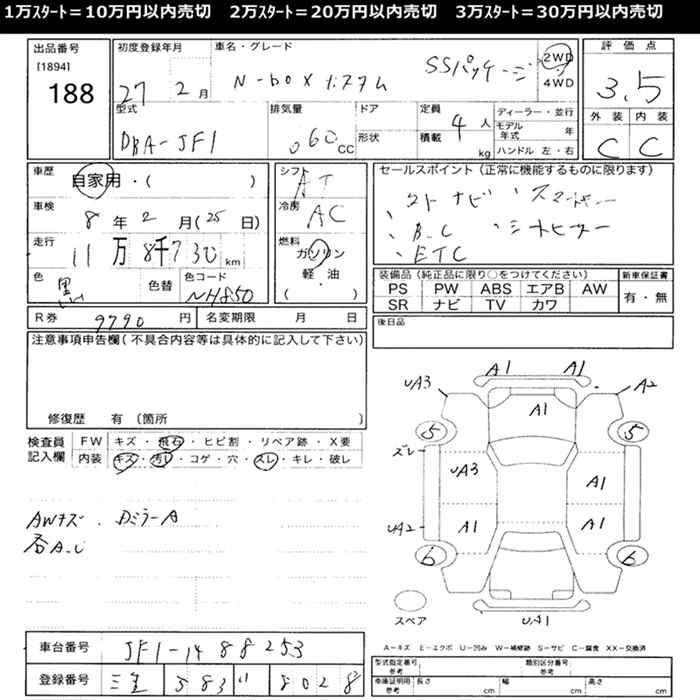 1万ｽﾀｰﾄ＝10万円以内売切　2万ｽﾀｰﾄ＝20万円以内売切　3万ｽﾀｰﾄ＝30万円以内売切
出品番号
[1894]
188
初度登録年月
27 2月
車名・グレード
N-BOX カスタム SSパッケージ
2WD
4WD
評価点
3.5
外装 内装
C C
型式
DBA-JF1
排気量
060 CC
ドア
形状
定員
4人
積載
kg
ディーラー・並行
モデル年式 年
ハンドル 左・右
車歴
自家用・( )
車検
8年2月(25日)
走行
11万8千730km
色
黒
色替
色コード
NH850
シフト
AT
冷房
AC
燃料
ガソリン
軽・油
( )
セールスポイント(正常に機能するものに限ります)
ナビ
B.C シートヒーター
ETC
装備品(純正品に限り○をつけてください)
PS PW ABS エアB AW
SR ナビ TV カワ
新車保証書
有・無
R券
9790円
名変期限 月 日
後日品
注意事項申告欄(不具合内容等は具体的に記入して下さい)
修復歴 有 〔箇所 〕
検査員記入欄
FW キズ・飛石・ヒビ割・リペア跡・X要
内装 キズ・汚れ・コゲ・穴・スレ・キレ・破レ
AWキズ. DミラーA
UA3 A1 A1 A2
A1
5 5
ズレ
UA3 A1
UA2 A1 A1
6 6
スペア
UA1
A－キズ E－エクボ U－凹み W－補修跡 S－サビ C－腐食 XX－交換済
車台番号
JF1-1488253
登録番号
三重 583 い 8028
型式指定番号 参考
類別区分番号 参考
車庫証明用 参考
長さ cm
幅 cm
高さ cm